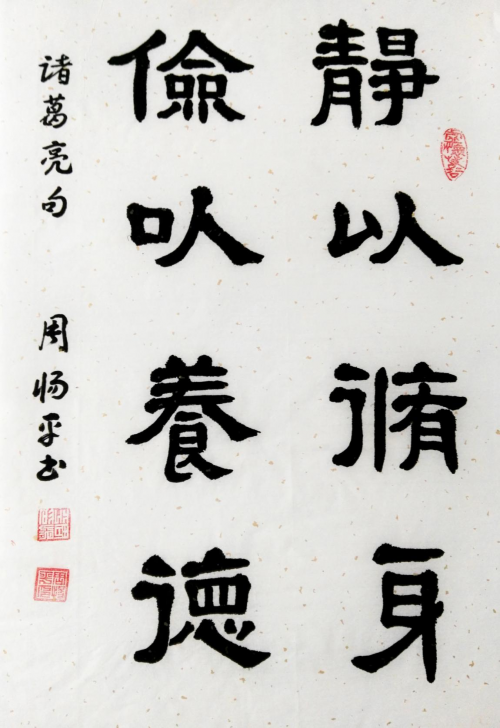 静以脩身
儉以養德
諸葛亮句
周惕平书